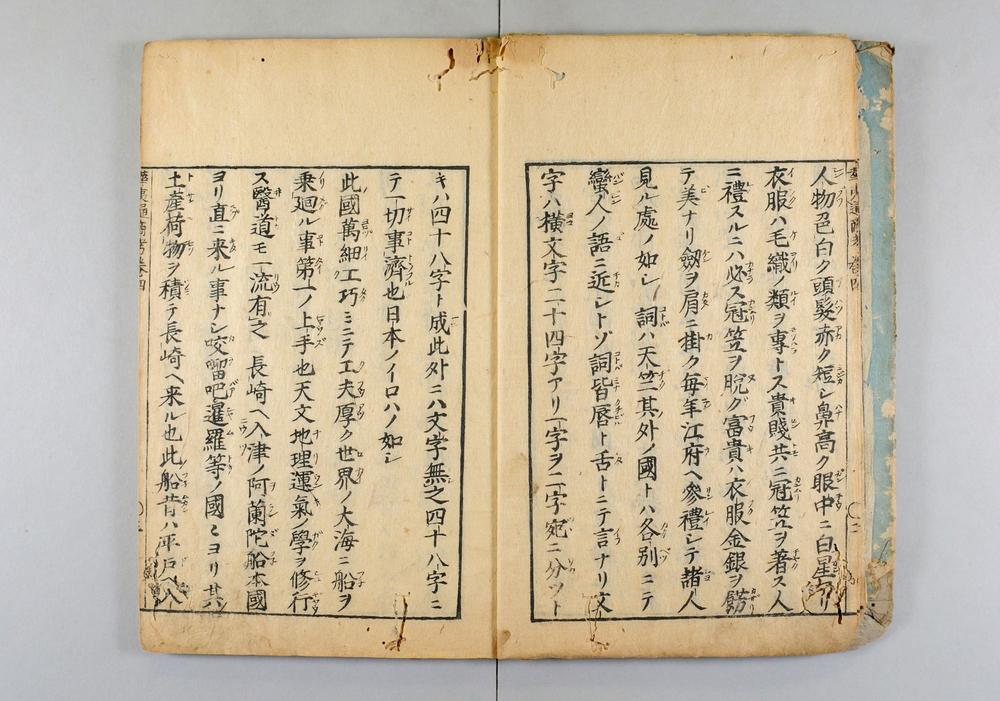 人物色白ク頭髮赤ク短シ鼻高ク眼中ニ白星有リ
衣服ハ毛織ノ類ヲ專トス貴賤共ニ冠笠ヲ著ス人
ニ禮スルニハ必ス冠笠ヲ脫グ富貴ハ衣服金銀ヲ餝
テ美ナリ劔ヲ肩ニ掛ク每年江府ヘ參禮シテ諸人
見ル處ノ如シ 詞ハ天竺其外ノ國トハ各別ニテ
蠻人ノ語ニ近シトゾ詞皆唇ト舌トニテ言ナリ文
字ハ橫文字二十四字アリ一字ヲ二字宛ニ分ツト
キハ四十八字ト成此外ニハ文字無之四十八字ニ
テ一切事濟也日本ノイロハノ如シ
此國萬細工巧ミニテ工夫厚ク世界ノ大海ニ船ヲ
乘廻ル事第一ノ上手也天文地理運氣ノ學ヲ修行
ス醫道モ一流有之 長崎ヘ入津ノ阿蘭陀船本國
ヨリ直ニ來ル事ナシ咬𠺕吧暹羅等ノ國〻ヨリ其
土產荷物ヲ積テ長崎ヘ来ル也此船昔ハ平戶ヘ入
華夷通商考卷四